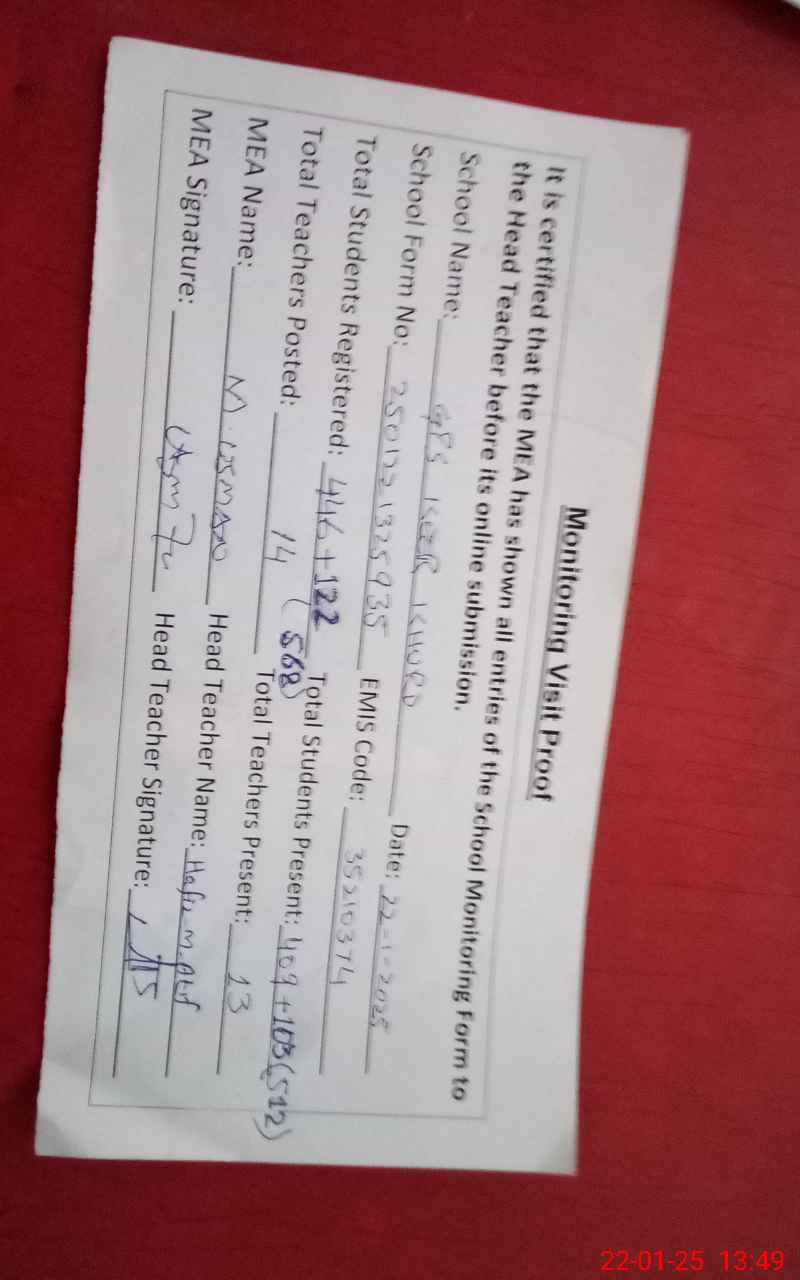 Monitoring Visit Proof
It is certified that the MEA has shown all entries of the School Monitoring Form to
the Head Teacher before its online submission.
School Name: GPS KEER KHURD Date: 22-1-2025
School Form No: 2501221325935 EMIS Code: 35210374
Total Students Registered: 446+122 (568) Total Students Present: 409+103(512)
Total Teachers Posted: 14 Total Teachers Present: 13
MEA Name: M. USMAN Head Teacher Name: Hafiz M.
MEA Signature: Head Teacher Signature:
22-01-25 13:49